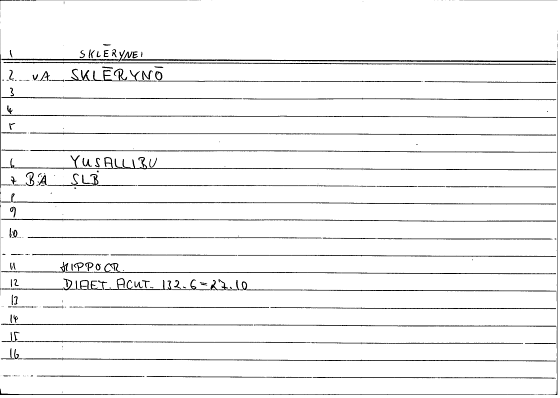 1 SKLĒRYNEI
2 VA SKLĒRYNŌ
3
4
5
6 YUSALLIBU
7 BA ṢLB
8
9
10
11 HIPPOCR.
12 DIAET. ACUT. 132.6=27.10
13
14
15
16